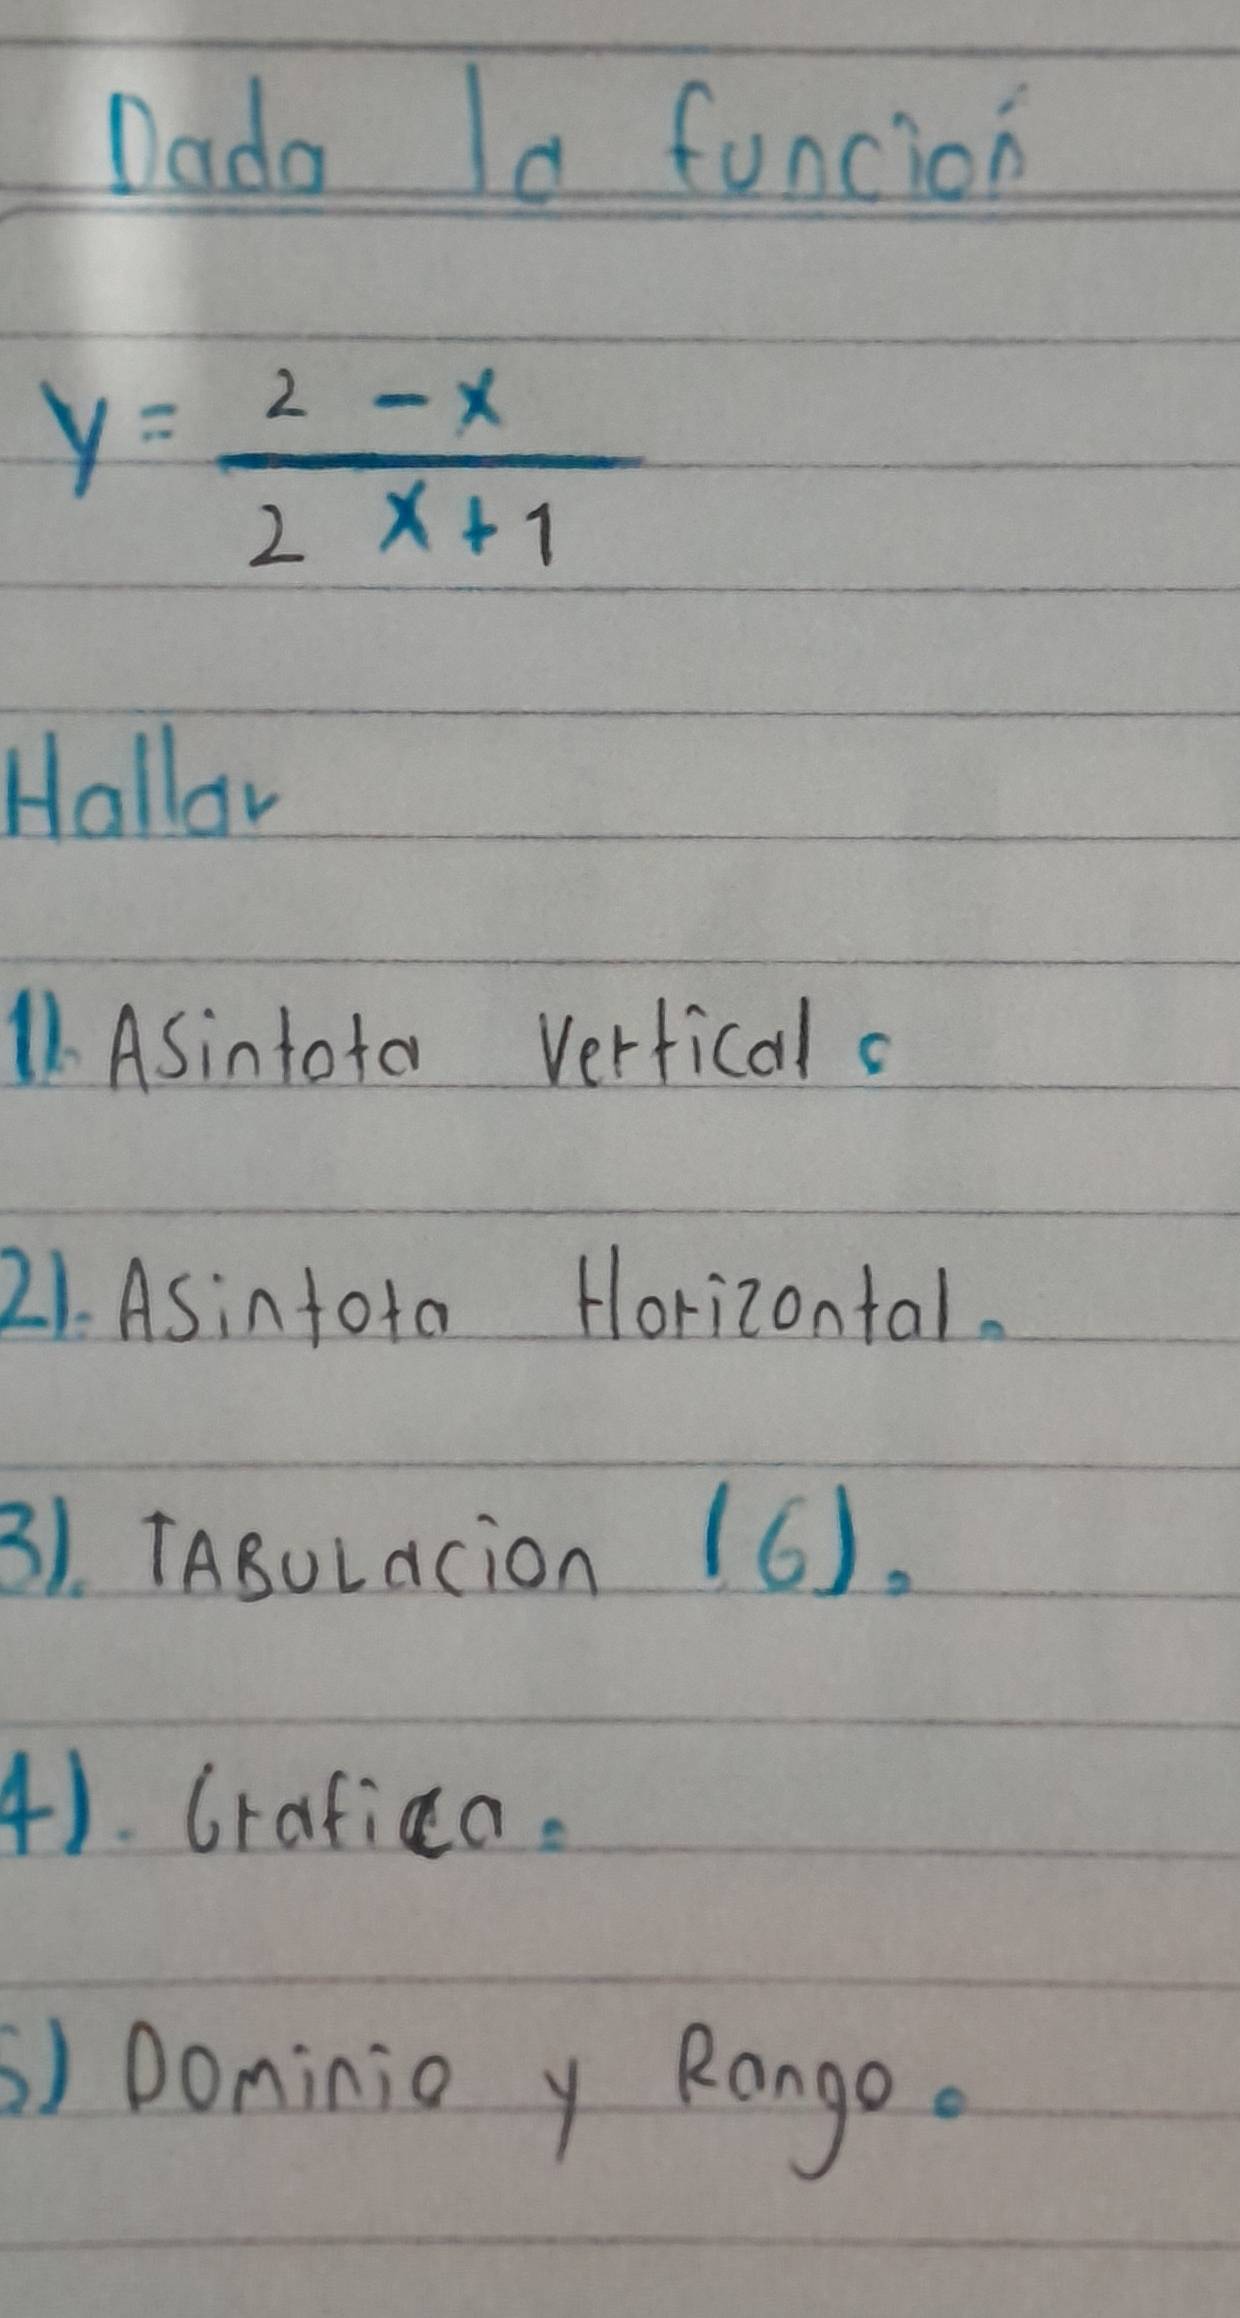 Dada la función
y = 2 - x
2 x + 1
Hallar
1). Asintota Vertical.
2). Asintota Horizontal.
3). TABULACION (6).
4). Grafica.
5) Dominio y Rango.